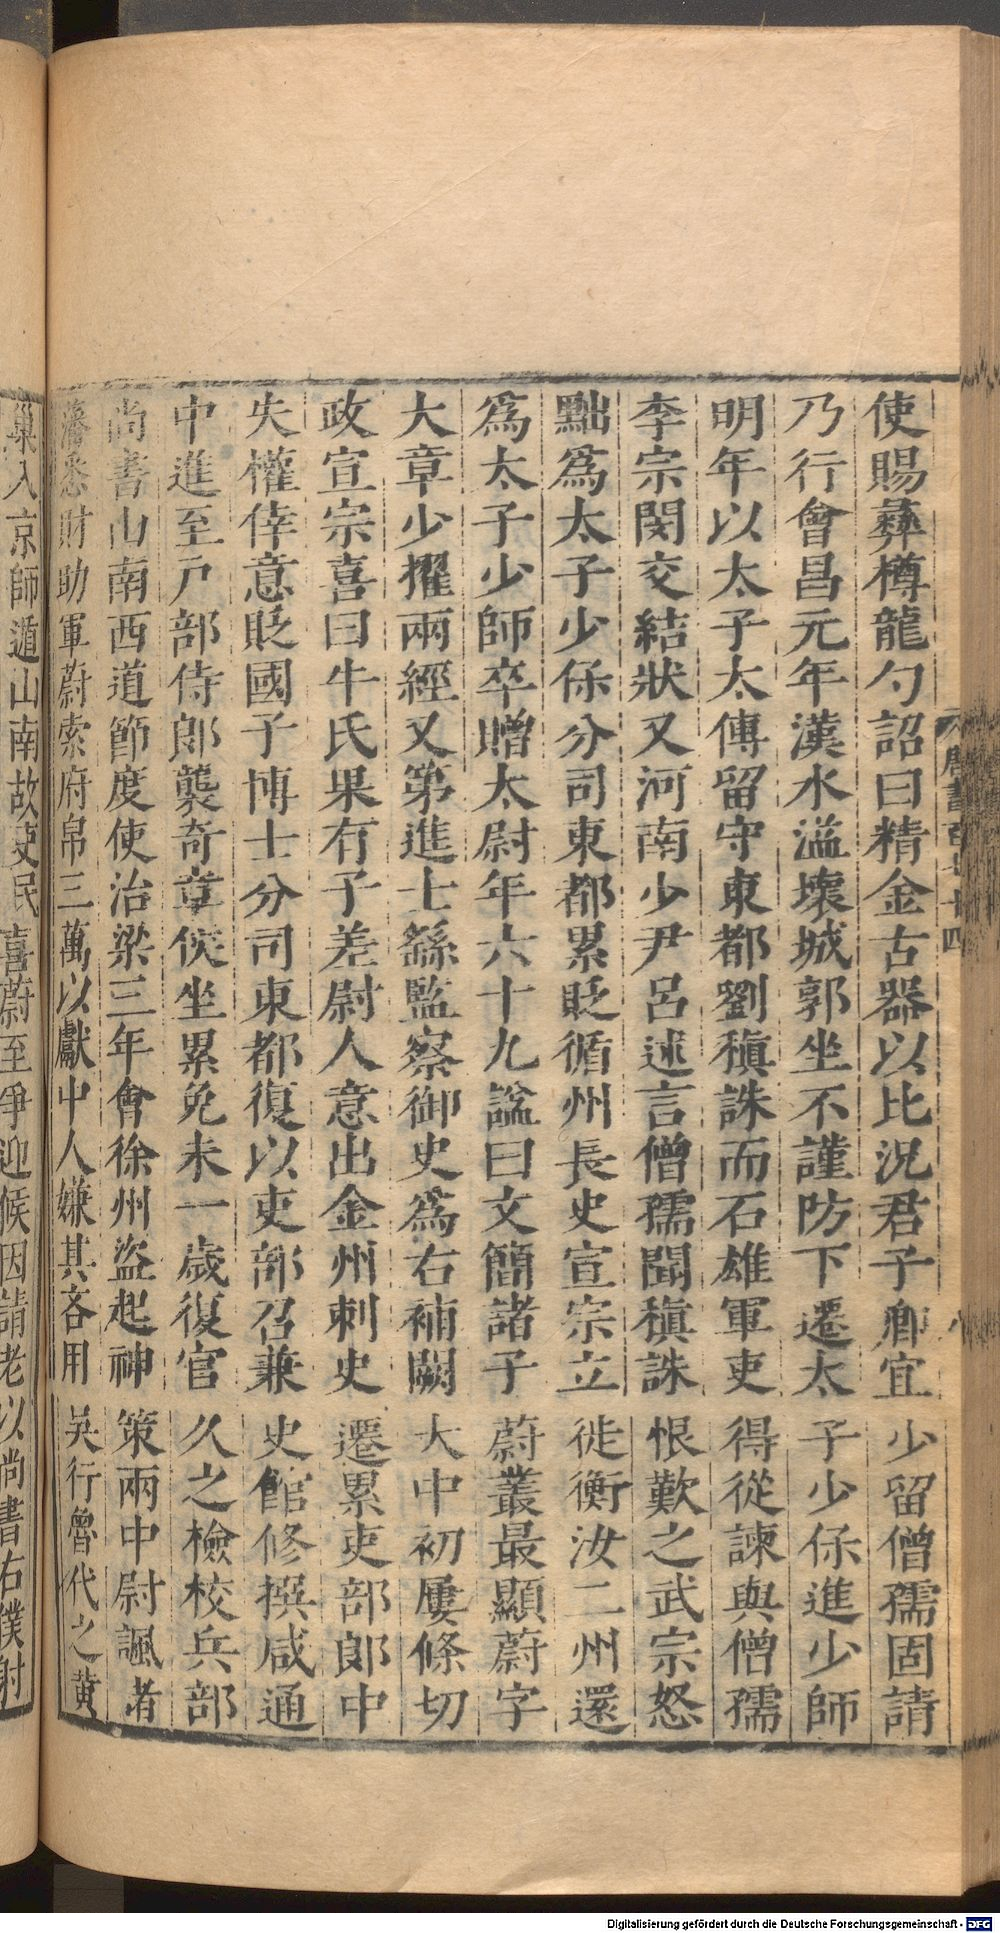 使賜彝樽龍勺詔曰精金古器以比況君子卿宜少留僧孺固請
乃行會昌元年漢水溢壞城郭坐不謹防下遷太子少保進少師
明年以太子太傅留守東都劉稹誅而石雄軍吏得從諫與僧孺
李宗閔交結狀又河南少尹呂述言僧孺聞稹誅恨歎之武宗怒
黜爲太子少保分司東都累貶循州長史宣宗立徙衡汝二州還
爲太子少師卒贈太尉年六十九諡曰文簡諸子蔚叢最顯蔚字
大章少擢兩經又第進士繇監察御史爲右補闕大中初屢條切
政宣宗喜曰牛氏果有子差尉人意出金州刺史遷累吏部郎中
失權倖意貶國子博士分司東都復以吏部召兼史館修撰咸通
中進至戸部侍郎襲奇章侯坐累免未一歲復官久之檢校兵部
尚書山南西道節度使治梁三年會徐州盜起神策兩中尉諷者
藩悉財助軍蔚索府帛三萬以獻中人嫌其吝用吳行魯代之黄
巢入京師遁山南故吏民喜蔚至爭迎候因請老以尚書右僕射
唐書百七十四
八
Digitalisierung gefördert durch die Deutsche Forschungsgemeinschaft - DFG